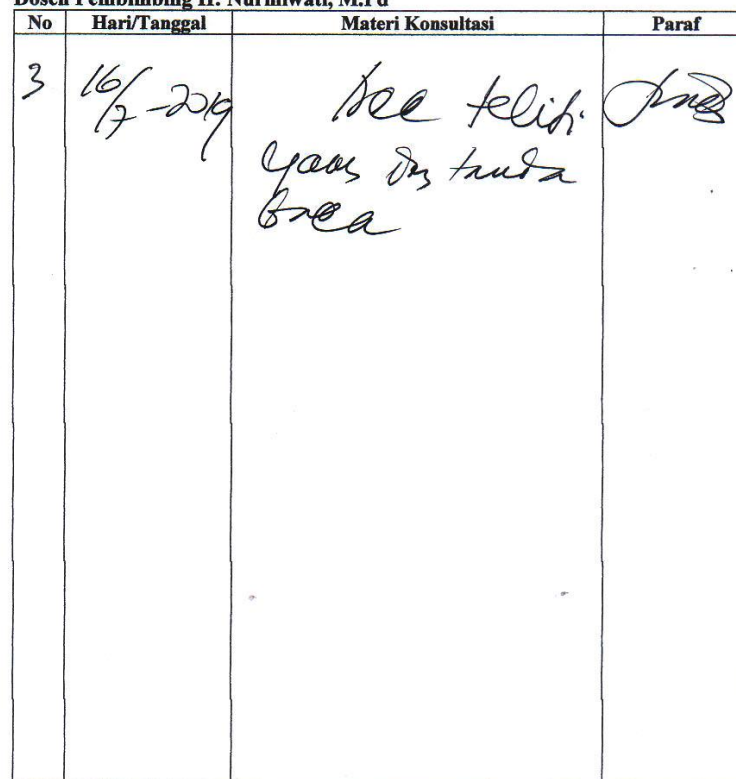 Dosen Pembimbing II: Nurmiwati, M.Pd
No Hari/Tanggal Materi Konsultasi Paraf
3 16/7-2019 Acc teliti
tanda
baca